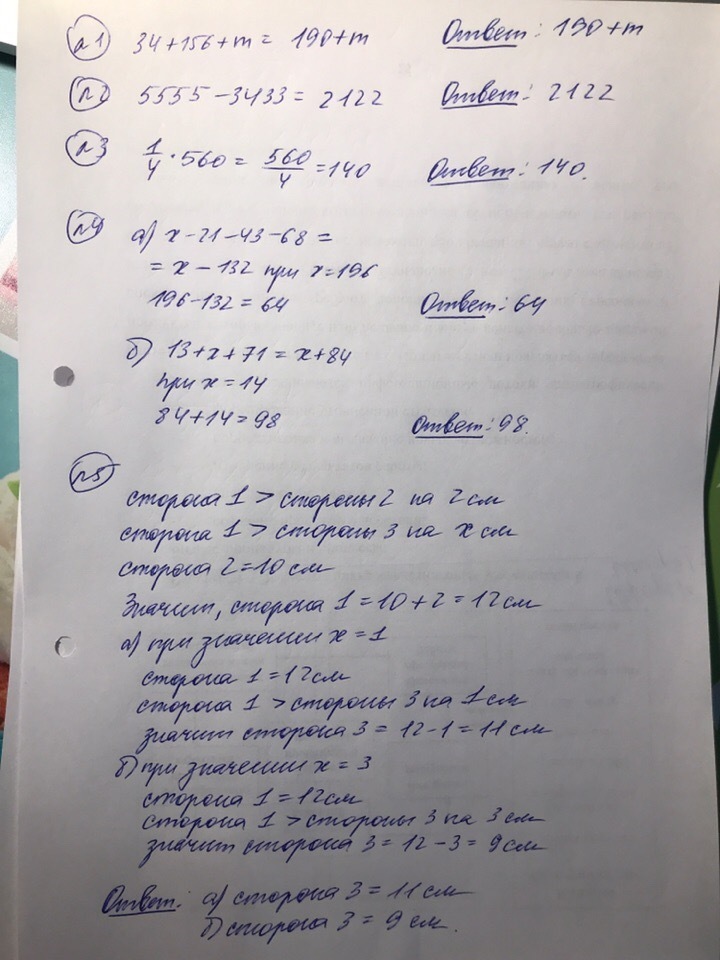 №1 34+156+m= 190+m Ответ: 190+m
№2 5555-3433= 2122 Ответ: 2122
№3 1/4 · 560 = 560/4 =140 Ответ: 140.
№4 а) x-21-43-68=
= x-132 при x=196
196-132=64 Ответ: 64
б) 13+x+71=x+84
при x=14
84+14=98 Ответ: 98.
№5
сторона 1 > стороны 2 на 2 см
сторона 1 > стороны 3 на x см
сторона 2=10 см
Значит, сторона 1=10+2=12см
а) при значении x=1
сторона 1=12см
сторона 1 > стороны 3 на 1 см
значит сторона 3= 12-1=11 см
б) при значении x=3
сторона 1=12см
сторона 1 > стороны 3 на 3 см
значит сторона 3=12-3=9см
Ответ: а) сторона 3=11 см
б) сторона 3= 9 см.